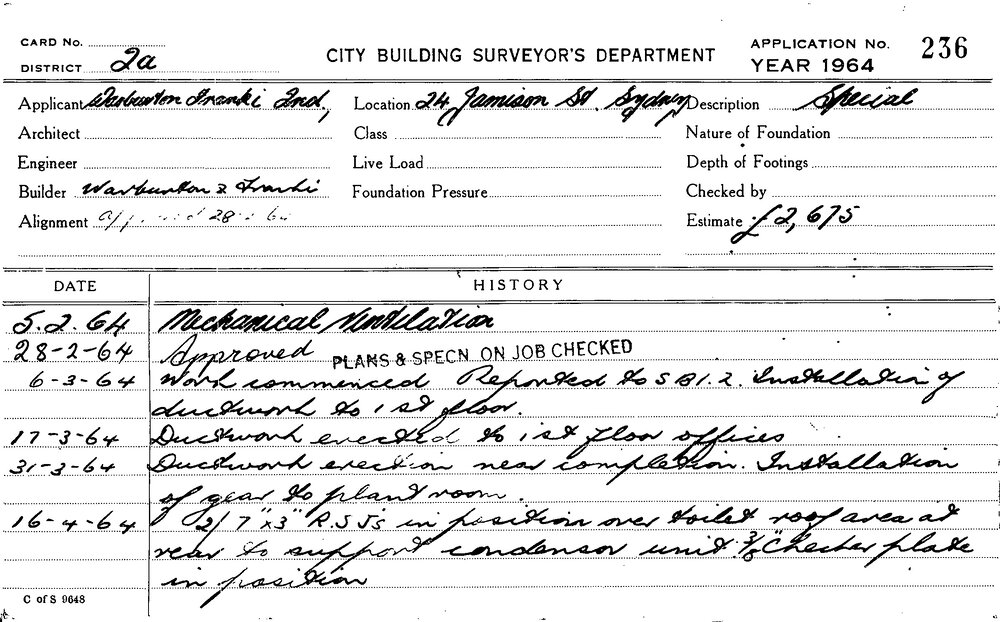 CARD No.
DISTRICT 2a
CITY BUILDING SURVEYOR'S DEPARTMENT
APPLICATION No. 236
YEAR 1964
Applicant Warburton Franki Ind,
Location 24 Jamison St. Sydney
Description Special
Architect
Class
Nature of Foundation
Engineer
Live Load
Depth of Footings
Builder Warburton & Franki
Foundation Pressure
Checked by
Alignment 28
Estimate £2,675
DATE HISTORY
5.2.64 Mechanical Ventilation
28-2-64 Approved PLANS & SPECN ON JOB CHECKED
6-3-64 Work commenced Reported to S B I. 2. Installation of
ductwork to 1st floor.
17-3-64 Ductwork erected to 1st floor offices
31-3-64 Ductwork erection near completion. Installation
of gear to plant room.
16-4-64 2/ 7"x3" R.S.J's in position over toilet roof area at
rear to support condensor unit. 3/8" Checker plate
in position
C of S 9648